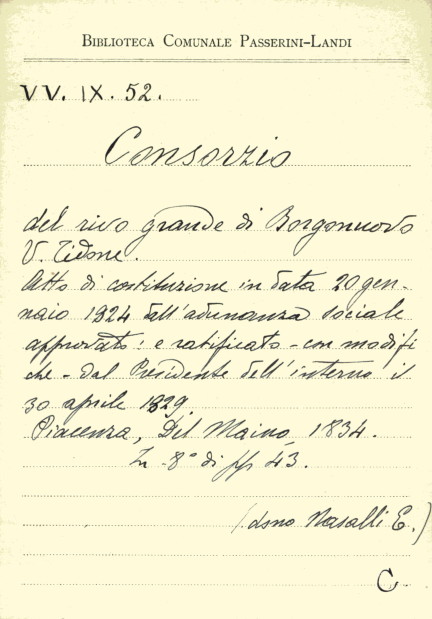 BIBLIOTECA COMUNALE PASSERINI-LANDI
VV. IX. 52.
Consorzio
del rivo grande di Borgonuovo
V. Tidone.
Atto di costituzione in data 20 gen-
naio 1824 dall'adunanza sociale
approvato: e ratificato - con modifi
che - dal Presidente dell'interno il
30 aprile 1829.
Piacenza, Del Maino, 1834.
In 8° di pp. 43.
(dono Nasalli E.)
C